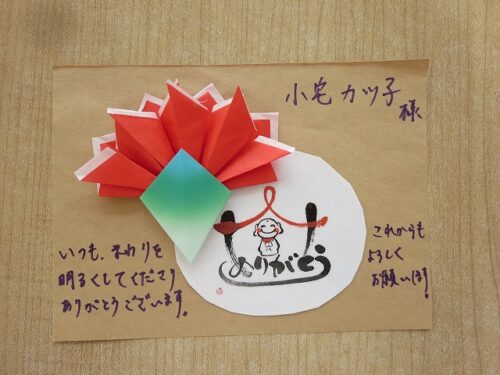 小宅カツ子
様
いつも、まわりを
明るくしてくださり
ありがとうございます。
ありがとう
これからも
よろしく
お願いします!